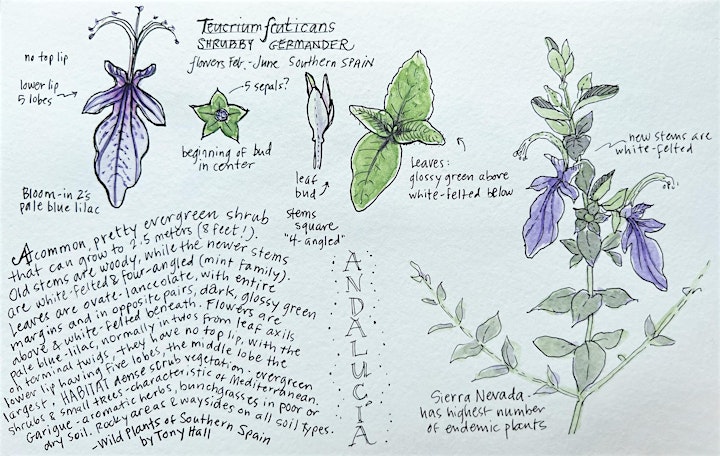 Teucrium fruticans
SHRUBBY GERMANDER
flowers Feb.-June Southern SPAIN
no top lip
lower lip
5 lobes
Bloom-in 2's
pale blue lilac
5 sepals?
beginning of bud
in center
leaf
bud
stems
square
"4-angled"
Leaves:
glossy green above
white-felted below
new stems are
white-felted
A common, pretty evergreen shrub
that can grow to 2.5 meters (8 feet!).
Old stems are woody, while the newer stems
are white-felted & four-angled (mint family).
Leaves are ovate-lanceolate, with entire
margins and in opposite pairs, dark, glossy green
above & white-felted beneath. Flowers are
pale blue lilac, normally in twos from leaf axils
on terminal twigs - they have no top lip, with the
lower lip having five lobes, the middle lobe the
largest. HABITAT dense scrub vegetation - evergreen
shrubs & small trees-characteristic of Mediterranean.
Garigue - aromatic herbs, bunchgrasses in poor or
dry soil. Rocky areas & waysides on all soil types.
-Wild Plants of Southern Spain
by Tony Hall
ANDALUCÍA
Sierra Nevada-
has highest number
of endemic plants